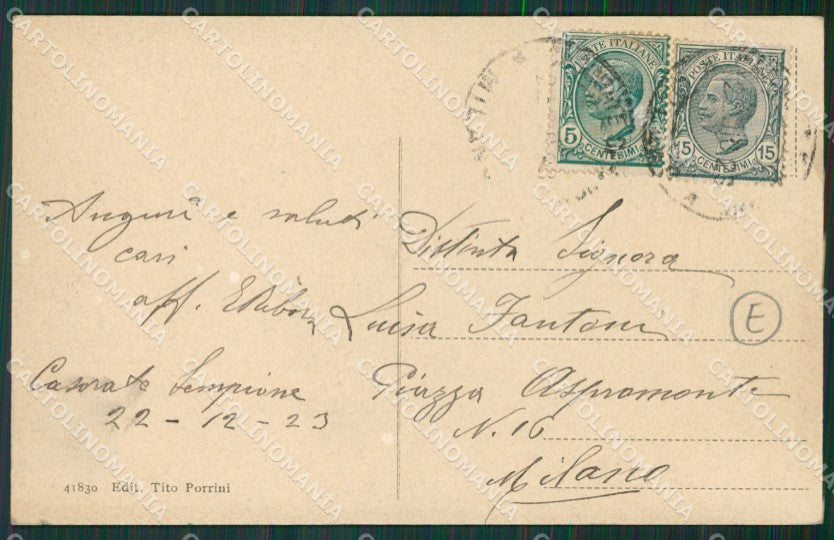 Auguri e saluti
cari
aff.
Casorate Sempione
22-12-23
41830 Edit. Tito Porrini
POSTE ITALIANE
5
CENTESIMI
POSTE ITALIANE
15 15
CENTESIMI
Distinta Signora
Luisa Fantoni
Piazza Aspromonte
N. 16
Milano
E
CARTOLINOMANIA